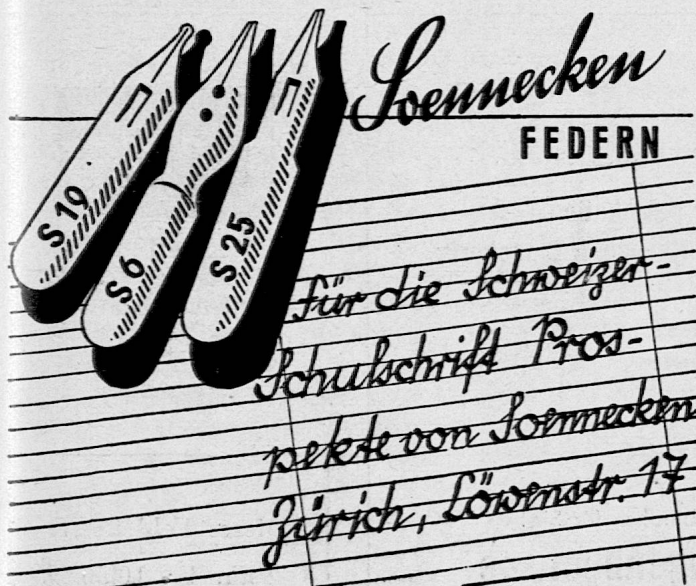 Soennecken
FEDERN
S 19
S 6
S 25
für die Schweizer-
Schulschrift Pros-
pekte von Soennecken
Zürich, Löwenstr. 17